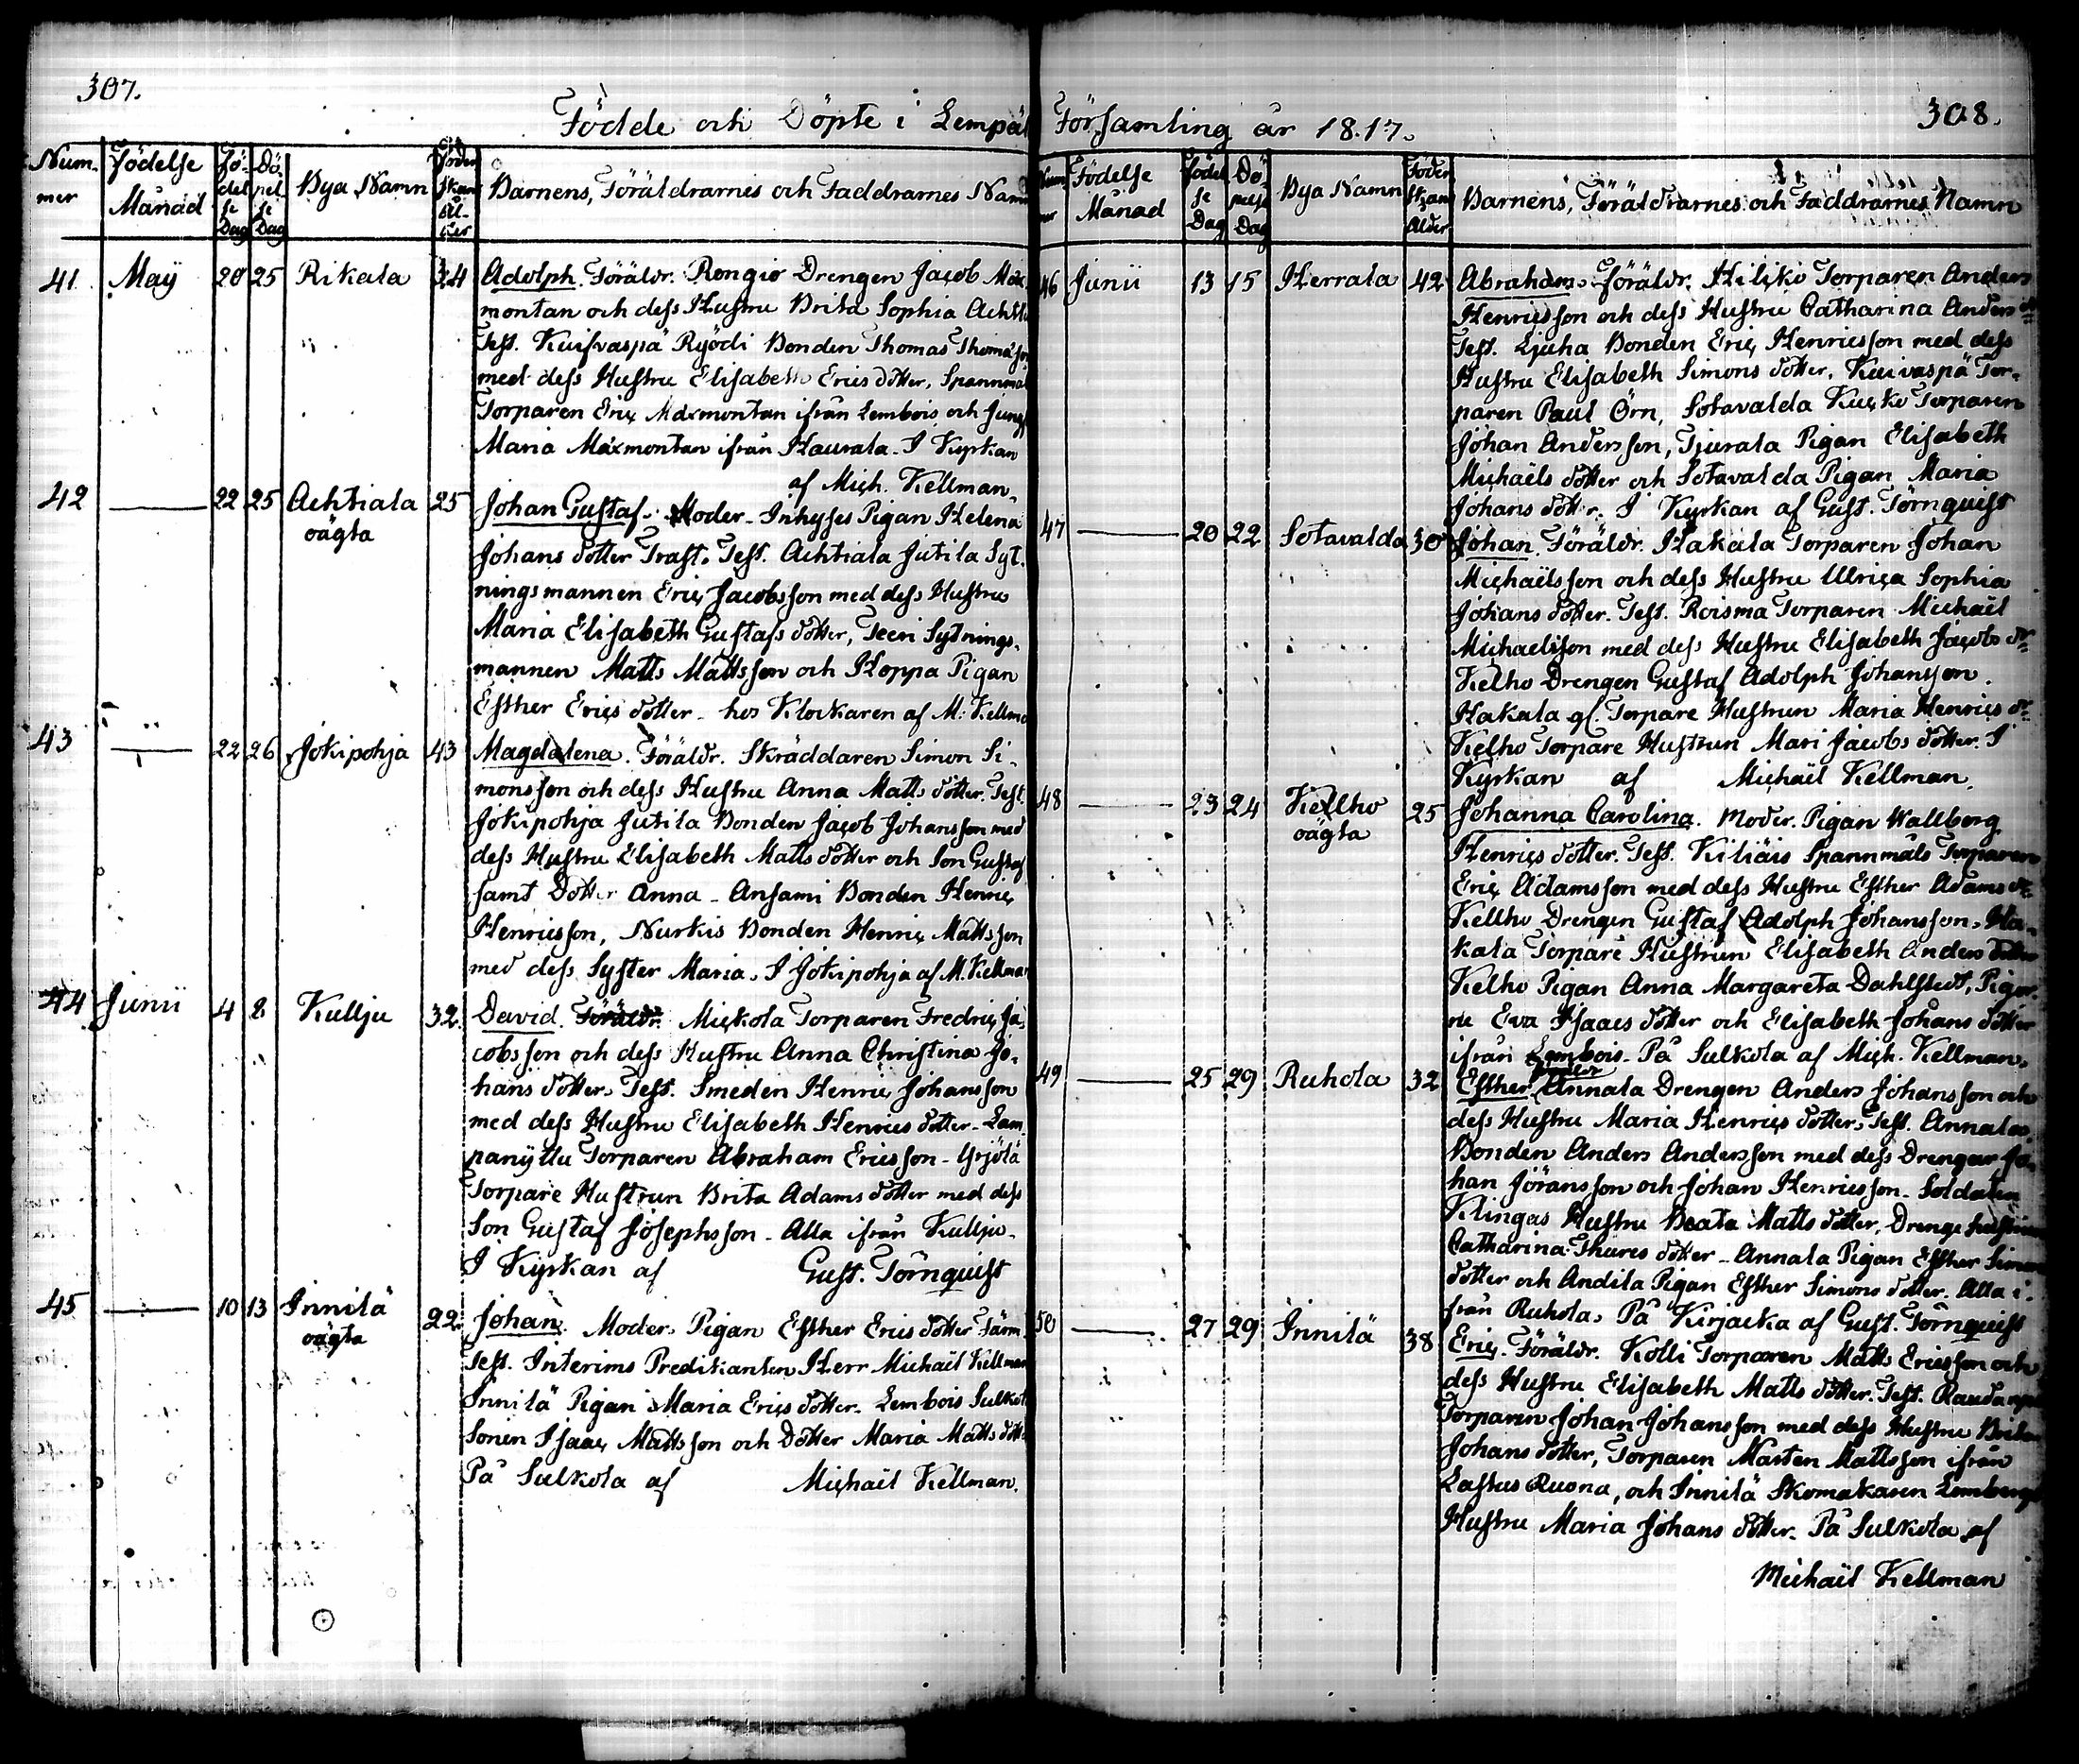 307.
Födde och Döpte i Lempäl
Num-
mer
Födelse
Månad
Fö-
del
se
Dag
Dö-
pel
se
Dag
Bya Namn
Föder
skans
Ål-
der
Barnens, Föräldrarnes och Faddrarnes Namn
41 May 20 25 Rikala 34 Adolph. Föräldr. Rengio Drengen Jacob Max
montan och dess Hustru Brita Sophia
Test. Kuisvaspä Ryödi Bonden Thomas Thomasson
med dess Hustru Elisabeth Erics dotter, Spannmåls
Torparen Eric Maxmontan ifrån Lembois och Jungf
Maria Maxmontan ifrån Haurala. I Kyrkan
af Mich. Kellman.
42 — 22 25 Achtiala 25 Johan Gustaf. Moder. Inhyses Pigan Helena
oägta
Johans dotter Trast. Test. Achtiala Jutila Syt-
ningsmannen Eric Jacobsson med dess Hustru
Maria Elisabeth Gustafs dotter, Teeri Sytnings-
mannen Matts Mattsson och Hoppa Pigan
Esther Erics dotter. hos Klockaren af M: Kellma
43 — 22 26 Jokipohja 43 Magdalena. Föräldr. Skräddaren Simon Si-
monsson och dess Hustru Anna Matts dotter. Test.
Jokipohja Jutila Bonden Jacob Johansson med
dess Hustru Elisabeth Matts dotter och Son Gustaf
samt Dotter Anna. Ansami Bonden Henric
Henricsson, Nurkis Bonden Henric Mattsson
med dess Syster Maria. I Jokipohja af M. Kellman
44 Junii 4 8 Kullju 32. David. Föräldr. Mickola Torparen Fredric Ja-
cobsson och dess Hustru Anna Christina Jo-
hans dotter. Test. Smeden Henric Johansson
med dess Hustru Elisabeth Henrics dotter. Lam
panyttu Torparen Abraham Ericsson. Yrjölä
Torpare Hustrun Brita Adams dotter med dess
Son Gustaf Josephsson. Alla ifrån Kullju.
I Kyrkan af Gust. Törnquist
45 — 10 13 Innilä 22. Johan. Moder. Pigan Esther Erics dotter Färm
oägta
Test. Interims Predikanten Herr Michaël Kellman
Innilä Pigan Maria Erics dotter. Lembois Sulkola
Sonen Isaac Mattsson och Dotter Maria Matts dott
På Sulkola af Michaël Kellman.
308.
Församling år 1817.
Num
mer
Födelse
Månad
Födel
se
Dag
Dö-
pelse
Dag
Bya Namn
Föder
skans
Ålder
Barnens, Föräldrarnes och Faddrarnes Namn
46 Junii 13 15 Herrala 42 Abraham. Föräldr. Hilicko Torparen Anders
Henricsson och dess Hustru Catharina Anders dr
Test. Ljuha Bonden Eric Henricsson med dess
Hustru Elisabeth Simons dotter, Kuivaspä Tor-
paren Paul Örn, Sotavalda Kucko Torparen
Johan Andersson, Tjurala Pigan Elisabeth
Michaëls dotter och Sotavalda Pigan Maria
Johans dotter. I Kyrkan af Gust. Törnquist
47 — 20 22 Sotavalda 30 Johan. Föräldr. Hakala Torparen Johan
Michaëlsson och dess Hustru Ulrica Sophia
Johans dotter. Test. Roisma Torparen Michaël
Michaelsson med dess Hustru Elisabeth Jacobs dr
Kelho Drengen Gustaf Adolph Johansson.
Hakala gl. Torpare Hustrun Maria Henrics dr
Kelho Torpare Hustrun Mari Jacobs dotter. I
Kyrkan af Michaël Kellman.
48 — 23 24 Kellho 25 Johanna Carolina. Moder. Pigan Wallborg
oägta
Henrics dotter. Test. Kiliäis Spannmåls Torparen
Eric Adamsson med dess Hustru Esther Adams dr
Kellho Drengen Gustaf Adolph Johansson. Ha-
kala Torpare Hustrun Elisabeth Anders dotter
Kelho Pigan Anna Margareta Dahlstedt, Pigor-
ne Eva Isaacs dotter och Elisabeth Johans dotter
ifrån Lembois. På Sulkola af Mich. Kellman.
49 — 25 29 Ruhola 32 Esther. Annala Drengen Anders Johansson och
dess Hustru Maria Henrics dotter. Test. Annala
Bonden Anders Andersson med dess Drengar Jo-
han Jöransson och Johan Henricsson. Soldaten
Klingas Hustru Beata Matts dotter, Drenge hustrun
Catharina Thures dotter. Annala Pigan Esther Simons
dotter och Andila Pigan Esther Simons dotter. Alla i-
från Ruhola. På Kirjacka af Gust. Törnquist
50 — 27 29 Innilä 38 Eric. Föräldr. Kolli Torparen Matts Ericsson och
dess Hustru Elisabeth Matts dotter. Test.
Torparen Johan Johansson med dess Hustru Brita
Johans dotter, Torparen Mårten Mattsson ifrån
Lastus Ruona, och Innilä Skomakaren Lembergs
Hustru Maria Johans dotter. På Sulkola af
Michaël Kellman